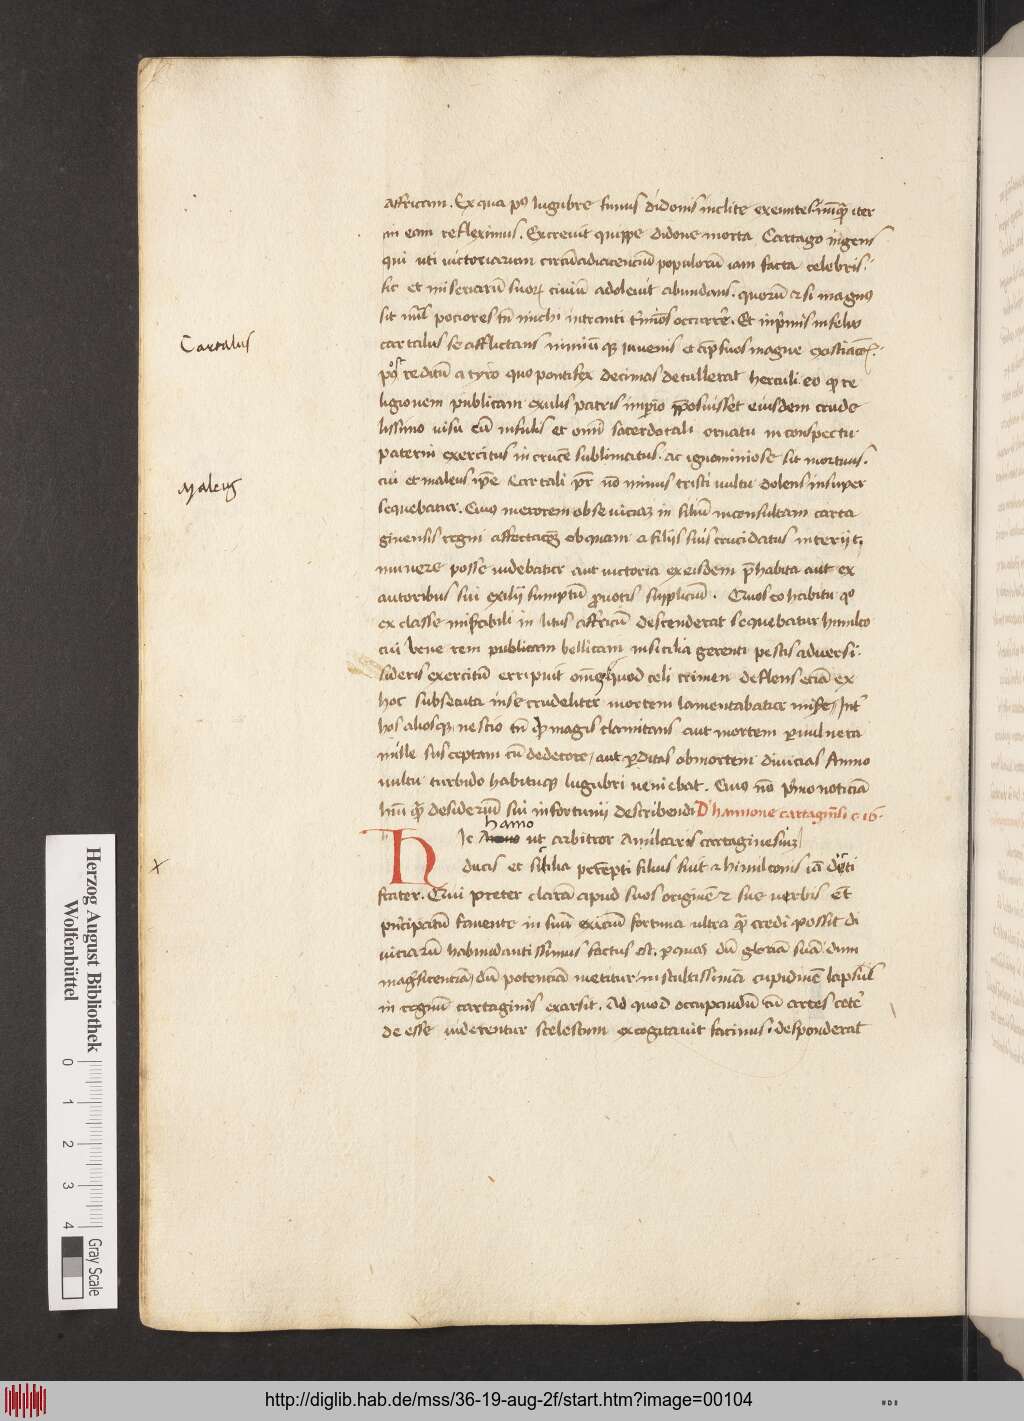 Cartalus
Maleus
affricam. Ex qua post lugubre funus didonis inclite exeuntes iter
in eam refleximus. Excrevit quippe didone morta Cartago ingens
qui uti victoriarum circumadiacencium populorum iam facta celebris.
sic et miseriarum suorum civium adolevit abundans. quorum et si magnus
sit potiores tn michi intranti occurrere. Et inprimis infelix
cartalus se afflictans nimium quod iuvenis et magne
post reditum a tyro quo pontifex decimas detullerat herculi eo quod re
ligionem publicam exulis patris impio proposuisset eiusdem crude
lissimo visu cum infulis et omni sacerdotali ornatu in conspectu
paterni exercitus in cruce sublimatus. ac ignominiose sit mortuus.
cui et maleus ipse Cartali pr non minus tristi vultu dolens insuper
sequebatur. Cuius merorem obsevicia in filium inconsultam carta
ginensis regni affectacionem obquam a filijs suis trucidatus interijt,
minuere posse videbatur aut victoria ex eisdem prehabita aut ex
autoribus sui exilij sumptum pro votis supplicium. Quos eo habitu quo
ex classe miserabili in litus affricum descenderat sequebatur himilco
cui bene rem publicam bellicam in sicilia gerenti pestis adversi.
sideris exercitum erripuit omnem quod celi crimen deflens eciam ex
hoc subsecuta inse crudeliter mortem lamentabatur misere Int
hos aliosque nescio tn quid magis clamitans aut mortem per vulnera
mille susceptam cum dedecore, aut perditas obmortem divicias Anno
vultu turbido habituque lugubri veniebat. Cuius non primo noticiam
desiderium sui infortunij describendi D hannone cartaginensi c 16
hanno
Hic ut arbitror Amilcaris cartaginesium
ducis et sicilia perempti filius fuit et himilconis iam dicti
frater. Qui preter claram apud suos originem et sue verbis
principatum favente in suum exicium fortuna ultra quam credi possit di
viciarum habundantissimus factus est. per quas dum gloriam suam dum
magnificenciam, dum potenciam metitur, in stultissimam cupidinem lapsus
in regnum cartaginis exarsit. Ad quod occupandum cum artes cete
deesse viderentur scelestum excogitavit facinus. desponderat
Herzog August Bibliothek
Wolfenbüttel
0 1 2 3 4
Gray Scale
http://diglib.hab.de/mss/36-19-aug-2f/start.htm?image=00104